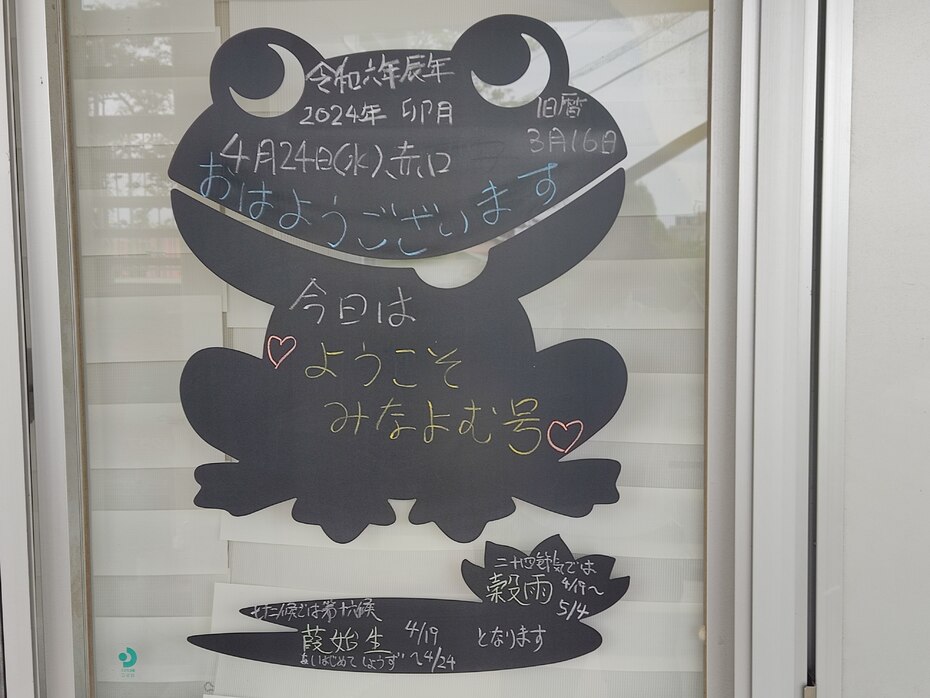 令和六年辰年
2024年 卯月
旧暦
3月16日
4月24日(水)、赤口
おはようございます
今日は
♡ようこそ
みなよむ号♡
二十四節気では
穀雨 4/19〜
5/4
七十二候では第十六候
葭始生 4/19
あしはじめてしょうず 〜4/24
となります